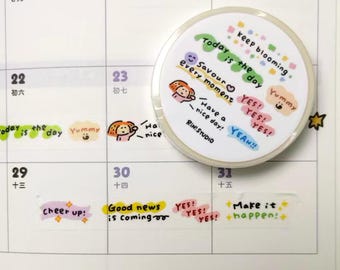 keep blooming
Today is the day
Savour
every moment
Yummy
Have a
nice day!
YES!
YES!
YES!
RIN.STUDIO
YEAH!!
22
初六
23
初七
Today is the
day
Yummy
Ha
nice
29
十三
30
十四
31
十五
Cheer up!
Good news
is coming
YES!
YES!
YES!
Make it
happen!